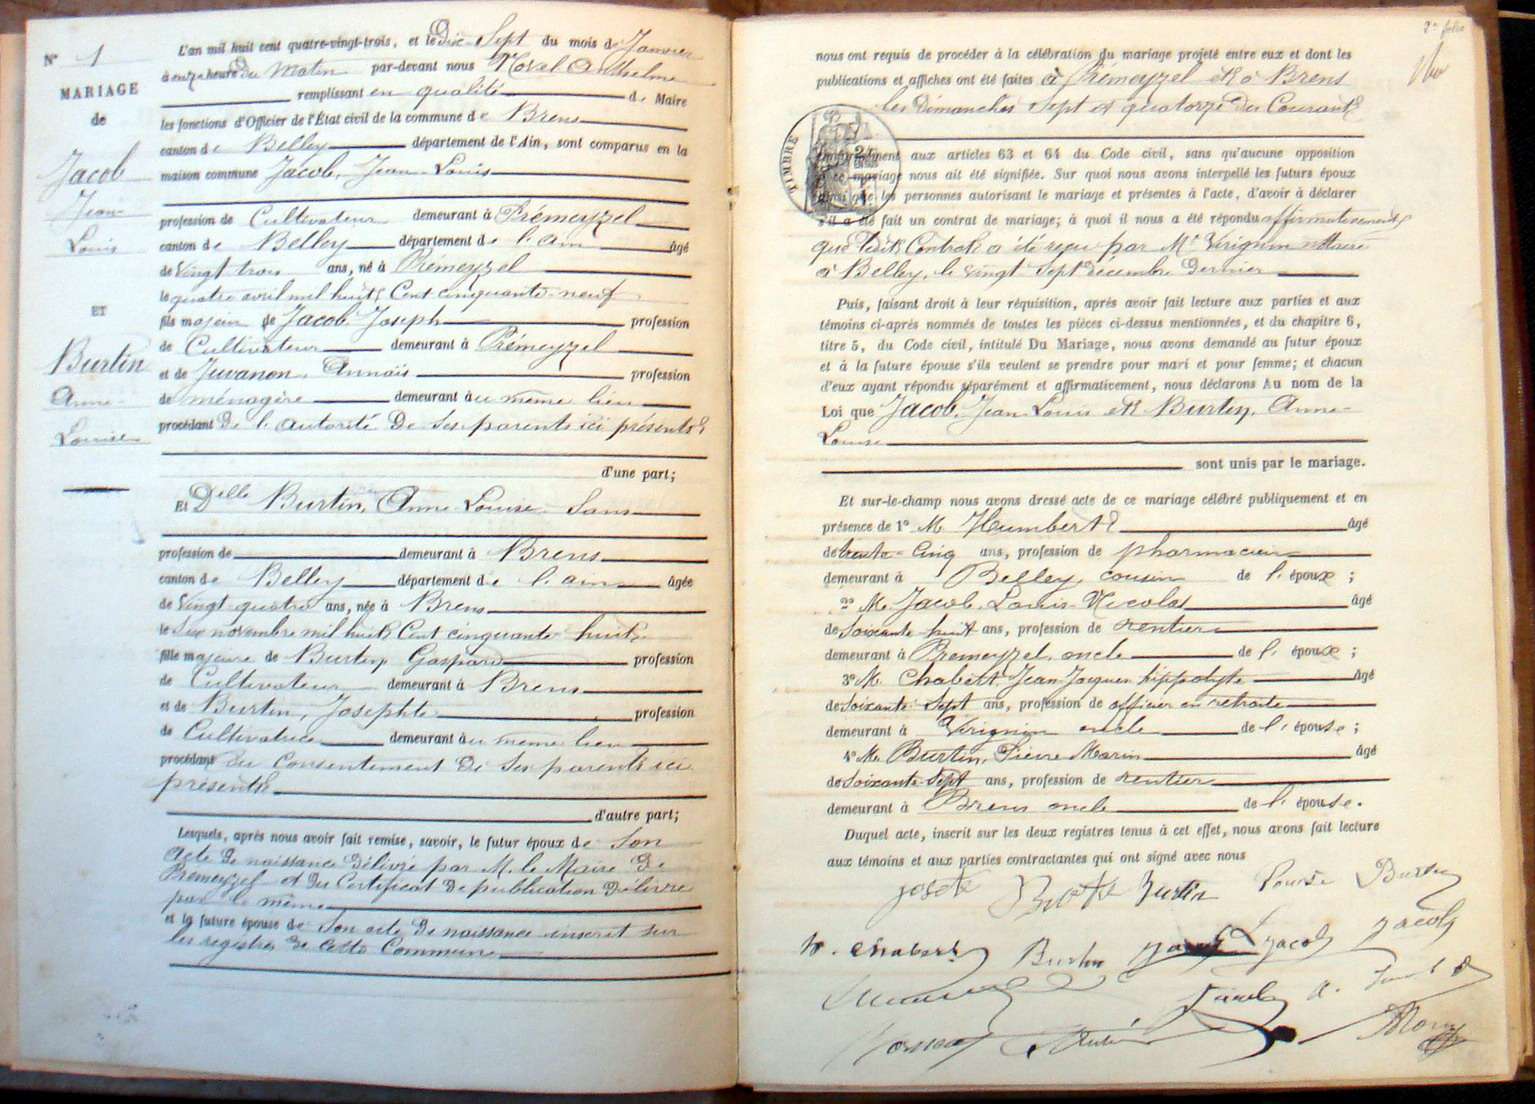 N° 1
MARIAGE
de
Jacob
Jean-
Louis
ET
Burtin
Anne-
Louise
L'an mil huit cent quatre-vingt-trois, et le Dix-Sept du mois de Janvier
à onze heure du Matin par-devant nous Morel Anthelme
remplissant en qualité de Maire
les fonctions d'Officier de l'État civil de la commune de Brens
canton de Belley département de l'Ain, sont comparus en la
maison commune Jacob, Jean-Louis
profession de Cultivateur demeurant à Prémeyzel
canton de Belley département de l'ain âgé
de Vingt trois ans, né à Prémeyzel
le quatre avril mil huit Cent cinquante-neuf
fils majeur de Jacob Joseph profession
de Cultivateur demeurant à Prémeyzel
et de Juvanon, Annaïs profession
de ménagère demeurant au même lieu
procédant De l'autorité De Ses parents ici présents
d'une part;
Et Delle Burtin, Anne-Louise Sans
profession de demeurant à Brens
canton de Belley département de l'ain âgée
de Vingt-quatre ans, née à Brens
le Six novembre mil huit Cent cinquante-huit
fille majeure de Burtin Gaspard profession
de Cultivateur demeurant à Brens
et de Burtin, Josephte profession
de Cultivatrice demeurant au même lieu
procédant du Consentement De Ses parents ici
présents
d'autre part;
Lesquels, après nous avoir fait remise, savoir, le futur époux de Son
acte De naissance Délivré par M. le Maire De
Prémeyzel et du Certificat De publication Délivré
par le même
et la future épouse de Son acte De naissance inscrit sur
les registres De cette Commune
2e folio
nous ont requis de procéder à la célébration du mariage projeté entre eux et dont les
publications et affiches ont été faites à Prémeyzel et à Brens
les Dimanches Sept et quatorze du Courant
TIMBRE
Conformément aux articles 63 et 64 du Code civil, sans qu'aucune opposition
à ce mariage nous ait été signifiée. Sur quoi nous avons interpellé les futurs époux
ainsi que les personnes autorisant le mariage et présentes à l'acte, d'avoir à déclarer
s'il a été fait un contrat de mariage; à quoi il nous a été répondu affirmativement
que Ledit Contrat a été reçu par Me Virignin notaire
à Belley, le vingt Sept Décembre Dernier
Puis, faisant droit à leur réquisition, après avoir fait lecture aux parties et aux
témoins ci-après nommés de toutes les pièces ci-dessus mentionnées, et du chapitre 6,
titre 5, du Code civil, intitulé Du Mariage, nous avons demandé au futur époux
et à la future épouse s'ils veulent se prendre pour mari et pour femme; et chacun
d'eux ayant répondu séparément et affirmativement, nous déclarons Au nom de la
Loi que Jacob, Jean-Louis et Burtin, Anne-
Louise
sont unis par le mariage.
Et sur-le-champ nous avons dressé acte de ce mariage célébré publiquement et en
présence de 1° M. Humbert âgé
de trente-Cinq ans, profession de pharmacien
demeurant à Belley, cousin de l'époux;
2° M. Jacob Louis-Nicolas âgé
de Soixante huit ans, profession de rentier
demeurant à Premeyzel, oncle de l'époux;
3° M. Chabert Jean Jacques hippolyte âgé
de Soixante-Sept ans, profession de officier en retraite
demeurant à Virignin oncle de l'épouse;
4° M. Burtin, Pierre Marin âgé
de Soixante-Sept ans, profession de rentier
demeurant à Brens oncle de l'épouse.
Duquel acte, inscrit sur les deux registres tenus à cet effet, nous avons fait lecture
aux témoins et aux parties contractantes qui ont signé avec nous
Burtin Louise Burtin
h. Chabert Burtin Jacob L Jacob Jacob